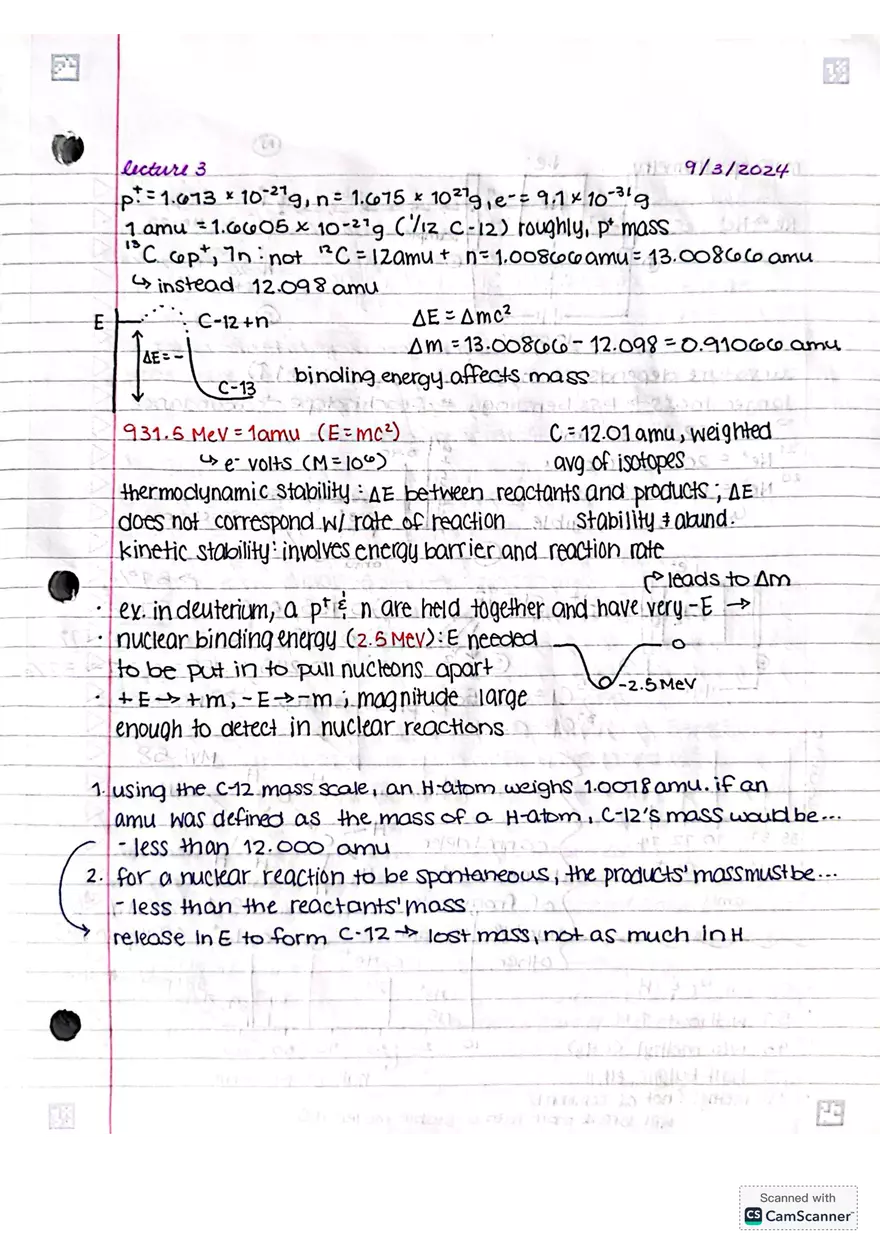 lecture 3 9/3/2024
p⁺ = 1.673 × 10⁻²⁷g, n = 1.675 × 10²⁷g, e⁻ = 9.1 × 10⁻³¹g
1 amu = 1.6605 × 10⁻²⁷g (1/12 C-12) roughly, p⁺ mass
¹³C 6p⁺, 7n : not ¹²C = 12amu + n = 1.00866amu = 13.00866 amu
↳ instead 12.098 amu
E C-12 + n ΔE = Δmc²
Δm = 13.00866 - 12.098 = 0.91066 amu
ΔE = -
C-13 binding energy affects mass
931.5 MeV = 1amu (E = mc²) C = 12.01 amu, weighted
↳ e⁻ volts (M = 10⁶) avg of isotopes
thermodynamic stability : ΔE between reactants and products ; ΔE
does not correspond w/ rate of reaction stability ≠ abund.
kinetic stability : involves energy barrier and reaction rate
↱ leads to Δm
· ex. in deuterium, a p⁺ & n are held together and have very -E →
· nuclear binding energy (2.5 MeV) : E needed 0
to be put in to pull nucleons apart -2.5 MeV
· +E → +m, -E → -m ; magnitude large
enough to detect in nuclear reactions
1. using the C-12 mass scale, an H-atom weighs 1.0078 amu. if an
amu was defined as the mass of a H-atom, C-12's mass would be...
- less than 12.000 amu
2. for a nuclear reaction to be spontaneous, the products' mass must be...
- less than the reactants' mass
release in E to form C-12 → lost mass, not as much in H
Scanned with
CS CamScanner